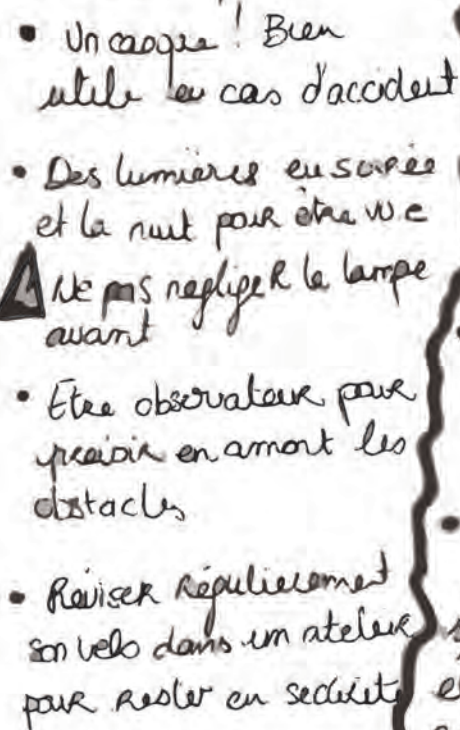 • Un casque ! Bien
utile en cas d'accident
• Des lumières en soirée
et la nuit pour être vu e
Ne pas negliger la lampe
avant
• Etre observateur pour
prevoir en amont les
obstacles
• Réviser régulierement
son velo dans un atelier
pour rester en securité